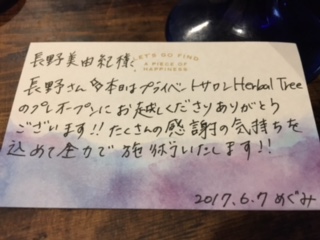 長野美由紀様
LET'S GO FIND
A PIECE OF
HAPPINESS
長野さん 本日はプライベートサロン Herbal Tree
のプレオープンにお越しくださりありがとう
ございます!! たくさんの感謝の気持ちを
込めて全力で施術いたします!!
2017.6.7 めぐみ